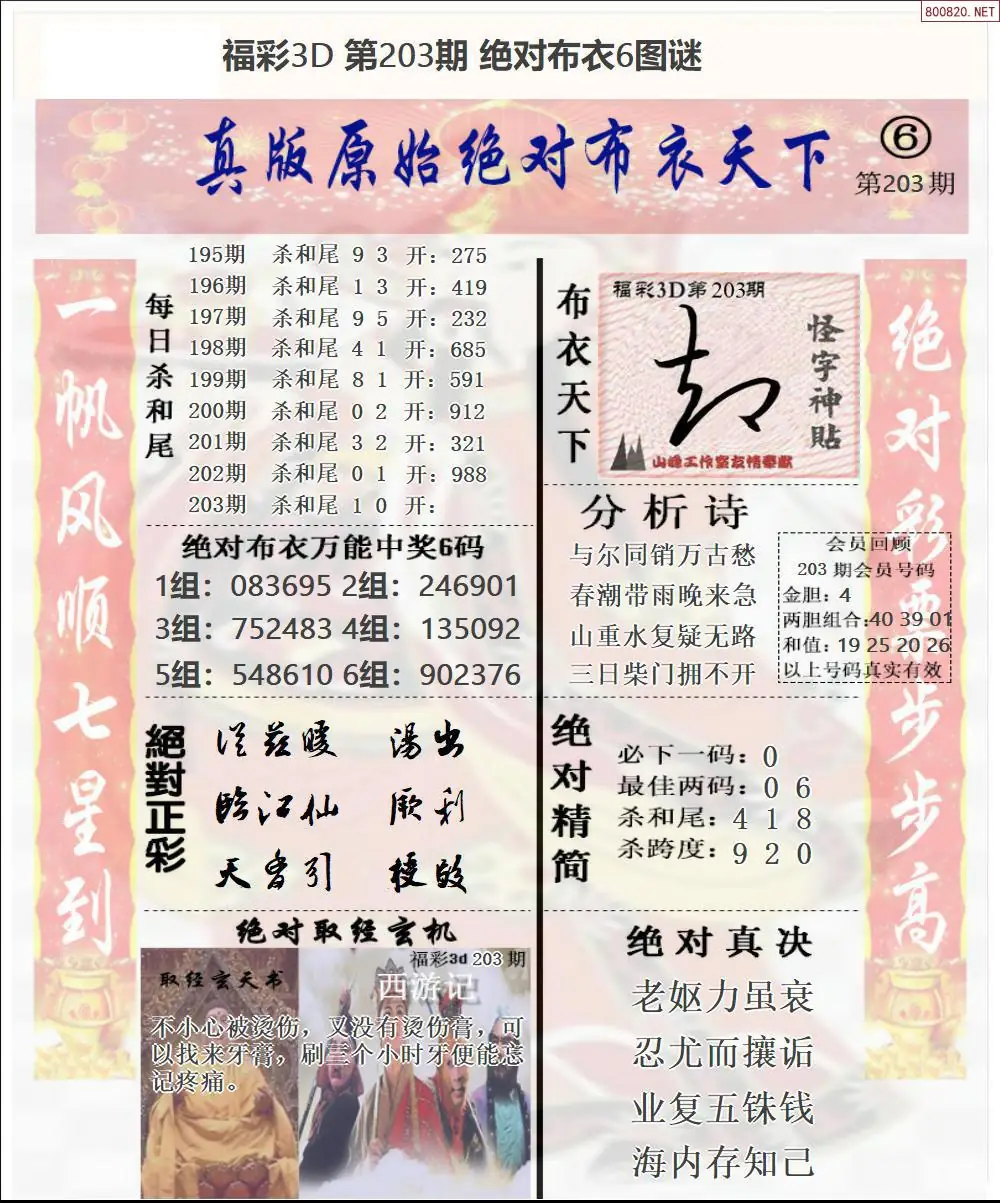 800820.NET
福彩3D 第203期 绝对布衣6图谜
真版原始绝对布衣天下
⑥
第203期
一帆风顺七星到
每日杀和尾
195期 杀和尾 9 3 开：275
196期 杀和尾 1 3 开：419
197期 杀和尾 9 5 开：232
198期 杀和尾 4 1 开：685
199期 杀和尾 8 1 开：591
200期 杀和尾 0 2 开：912
201期 杀和尾 3 2 开：321
202期 杀和尾 0 1 开：988
203期 杀和尾 1 0 开：
绝对布衣万能中奖6码
1组：083695 2组：246901
3组：752483 4组：135092
5组：548610 6组：902376
絕對正彩
临江仙
天香引
绝对取经玄机
福彩3d 203 期
取经玄天书
西游记
不小心被烫伤，又没有烫伤膏，可
以找来牙膏，刷三个小时牙便能忘
记疼痛。
布衣天下
福彩3D第203期
怪字神贴
山峰工作室友情奉献
分析诗
与尔同销万古愁
春潮带雨晚来急
山重水复疑无路
三日柴门拥不开
会员回顾
203 期会员号码
金胆：4
两胆组合:40 39 01
和值：19 25 20 26
以上号码真实有效
绝对精简
必下一码：0
最佳两码：0 6
杀和尾：4 1 8
杀跨度：9 2 0
绝对真决
老妪力虽衰
忍尤而攘诟
业复五铢钱
海内存知己
绝对彩票步步高